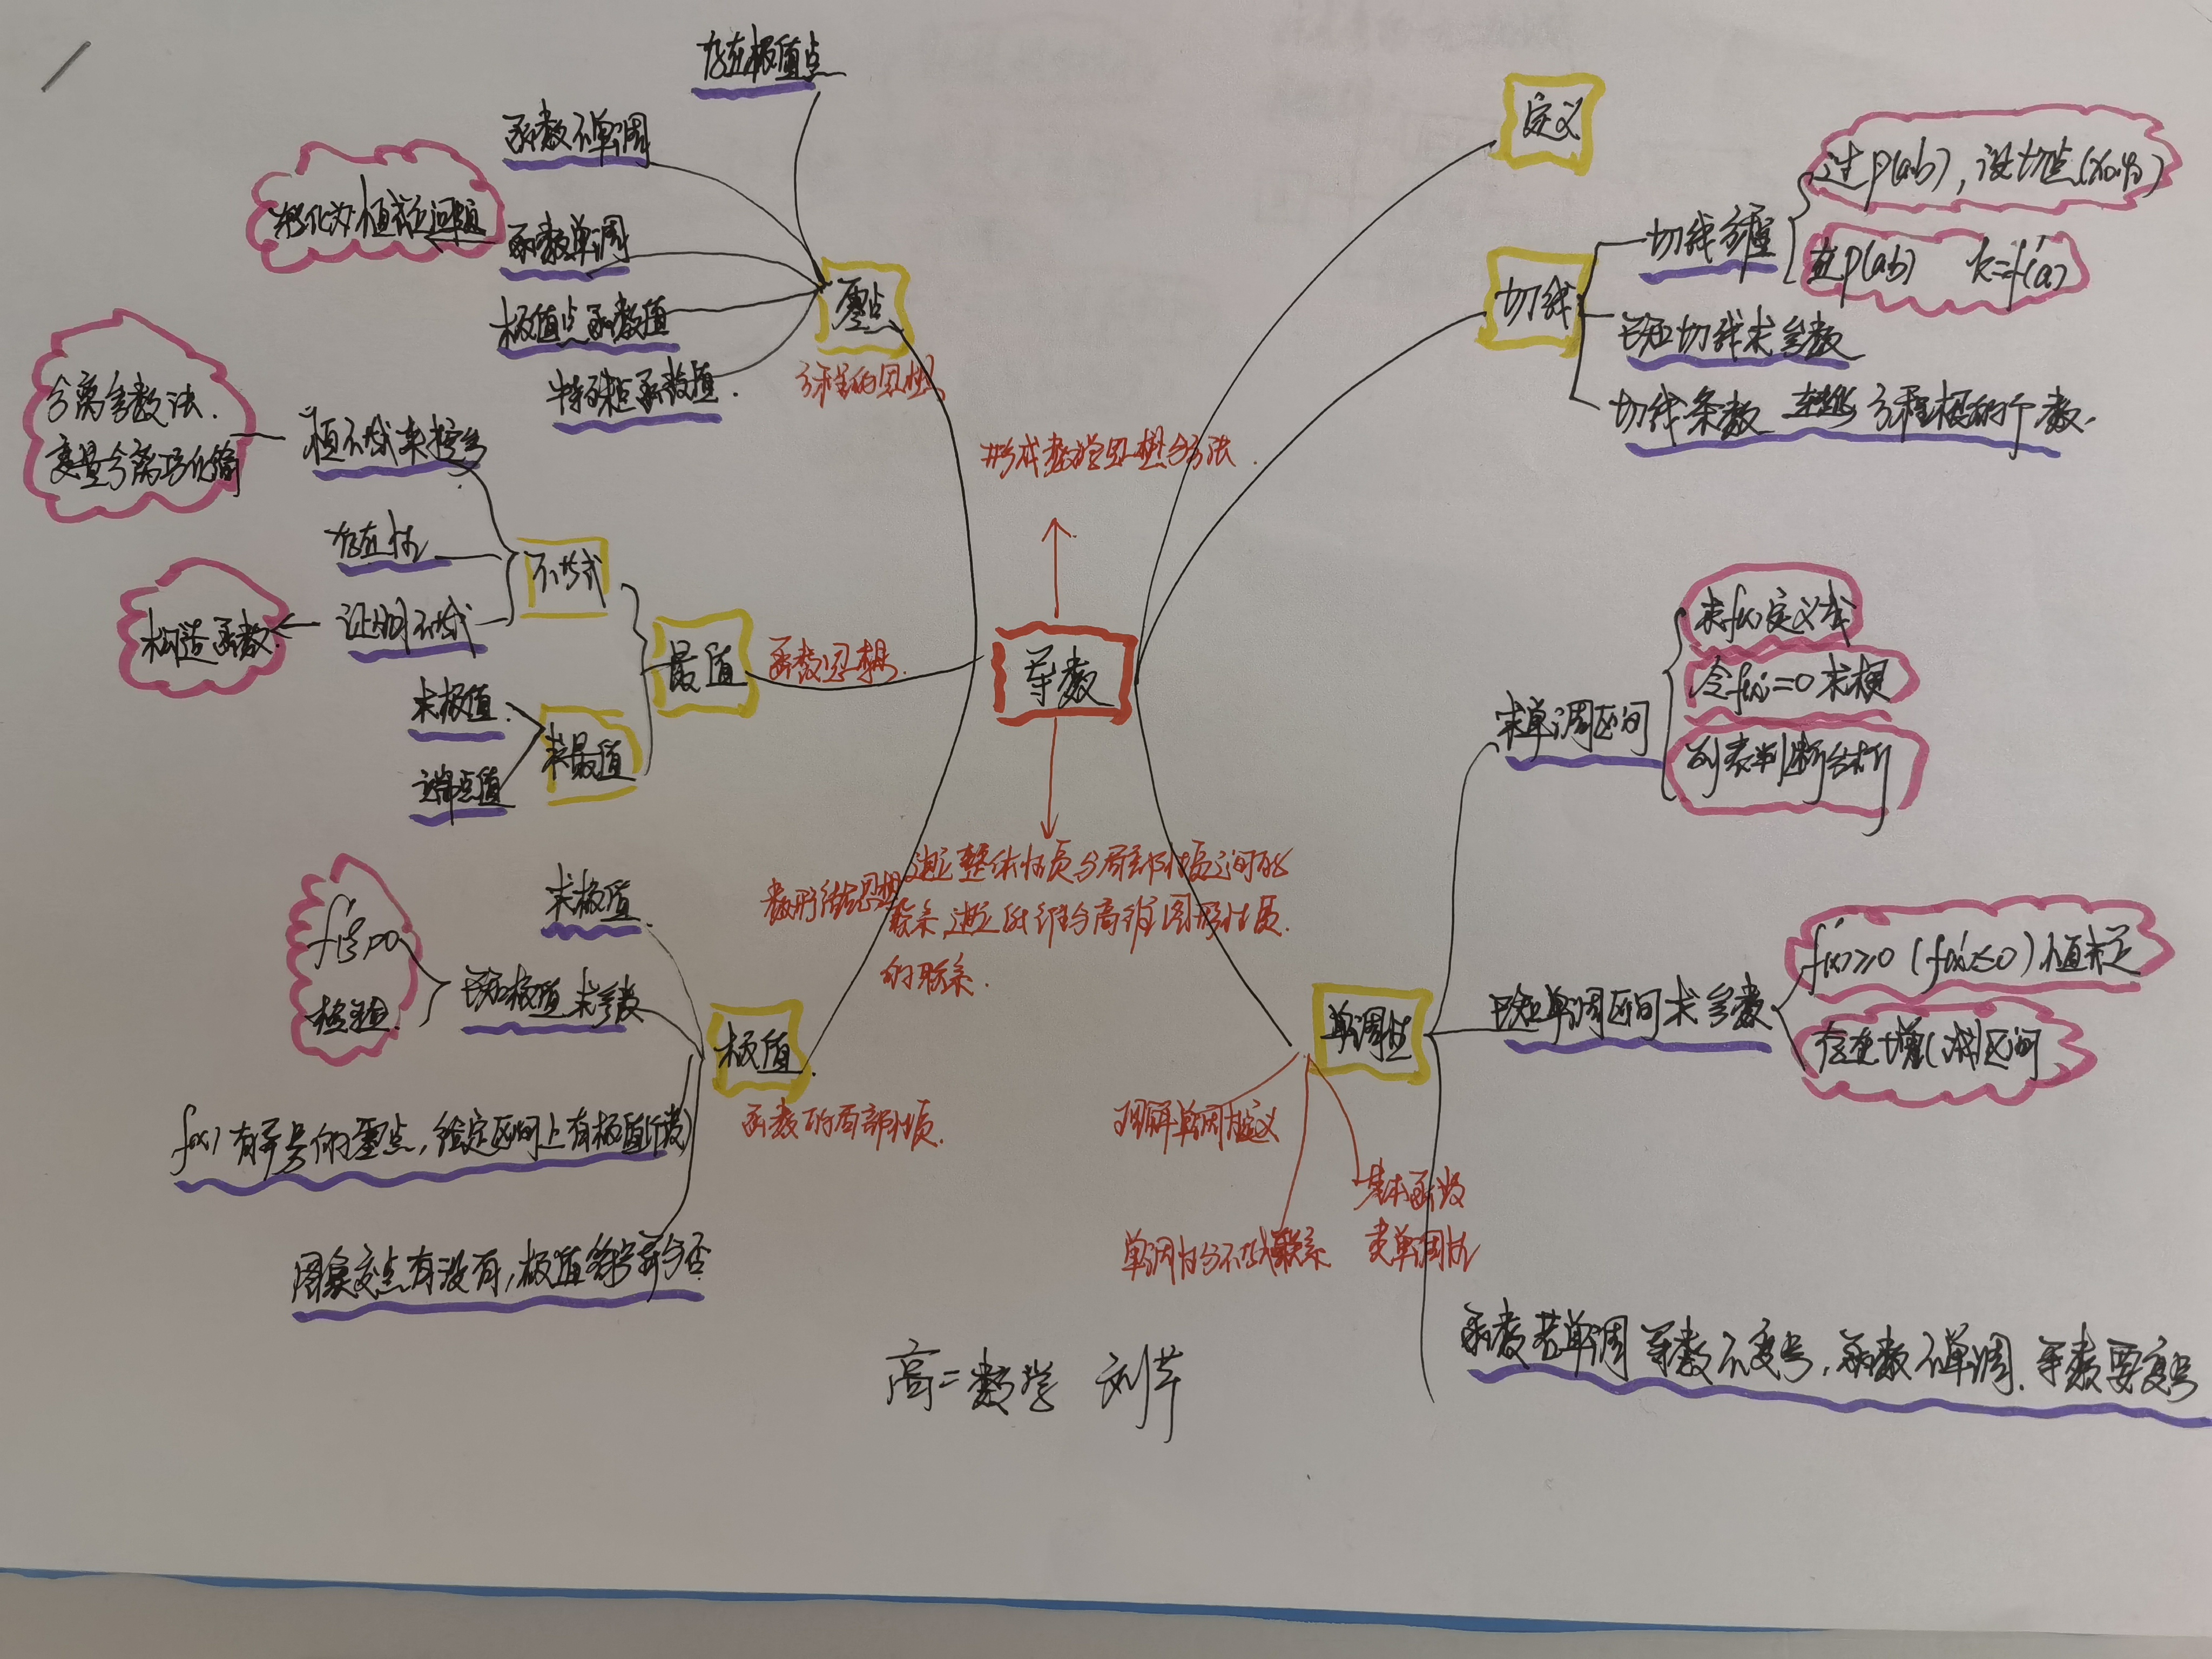 存在极值点
函数不单调
转化为恒成立问题
函数单调
极值点函数值
特殊点函数值.
零点
方程的思想
分离参数法.
变量分离巧化简
恒不成求控参
存在性
证明不等式
构造函数.
不等式
求极值.
端点值
求最值
最值
函数思想.
形成数学思想与方法.
导数
数形结合思想
建立整体性质与局部性质之间的
联系,建立低维与高维图形性质.
的联系.
求极值.
检验.
已知极值求参数
极值.
函数的局部性质.
有异号的零点,给定区间上有极值(一类)
图象交点有没有,极值符号异与否
定义
切线
切线方程
过P(a,b),设切点(x₀,y₀)
在P(a,b) k=f'(a)
已知切线求参数
切线条数 转化 方程根的个数.
求单调区间
求f(x)定义域
令f'(x)=0求根
列表判断分析
单调性
已知单调区间求参数
f'(x)≥0(f'(x)≤0)恒成立
存在增(减)区间
理解单调性定义
基本函数
单调性与不等式联系
类单调性
函数若单调 导数不变号,函数不单调.导数要变号
高二数学 刘芹